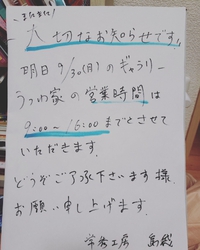 大切なお知らせです!
明日9/30(月)のギャラリー
うつわ家の営業時間は
9:00~16:00までとさせて
いただきます。
どうぞご了承下さいます様
お願い申し上げます。